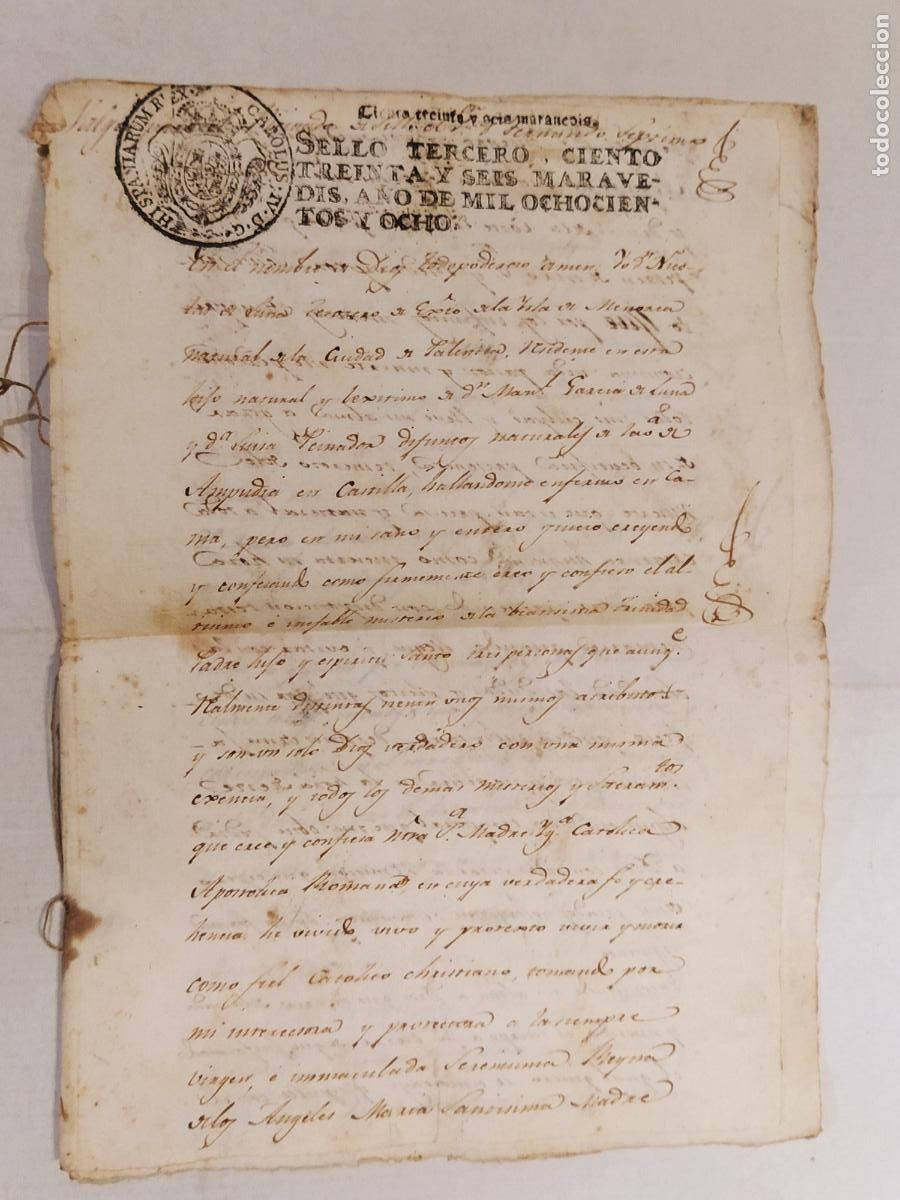 HISPANIARUM REX. CAROLUS. IV. D. G.
Ciento treinta y seis maravedis.
Valga Fernando Septimo
SELLO TERCERO, CIENTO
TREINTA Y SEIS MARAVE-
DIS, AÑO DE MIL OCHOCIEN-
TOS Y OCHO.
En el nombre de Dios todopoderoso amen. Yo dn. Nico-
las de Luna tesorero de Exto. de la Ysla de Menorca
natural de la Ciudad de Palencia, residente en esta
hijo natural y lexitimo de dn. Manl. Garcia de Luna
y da. Peinador difuntos naturales de la de
Ampudia en Castilla, hallandome enfermo en Ca-
ma, pero en mi sano y entero juicio creyendo
y confesando como firmemente creo y confieso el al-
tisimo é inefable misterio de la beatisima trinidad
Padre hijo y espiritu santo tres personas que aunqe.
realmente distintas tienen unos mismos atributos
y son un solo Dios verdadero con una misma
exencia, y todos los demas misterios y Sacramtos.
que cree y confiesa ntra. Sa. Madre Yga. Catolica
Apostolica Romana, en cuya verdadera fe y cre-
hencia he vivido, vivo y protexto vivir y morir
como fiel Catolico christiano, tomando por
mi intercesora y protectora a la siempre
virgen, é immaculada Serenisima Reyna
de los Angeles Maria Santisima Madre
todocoleccion